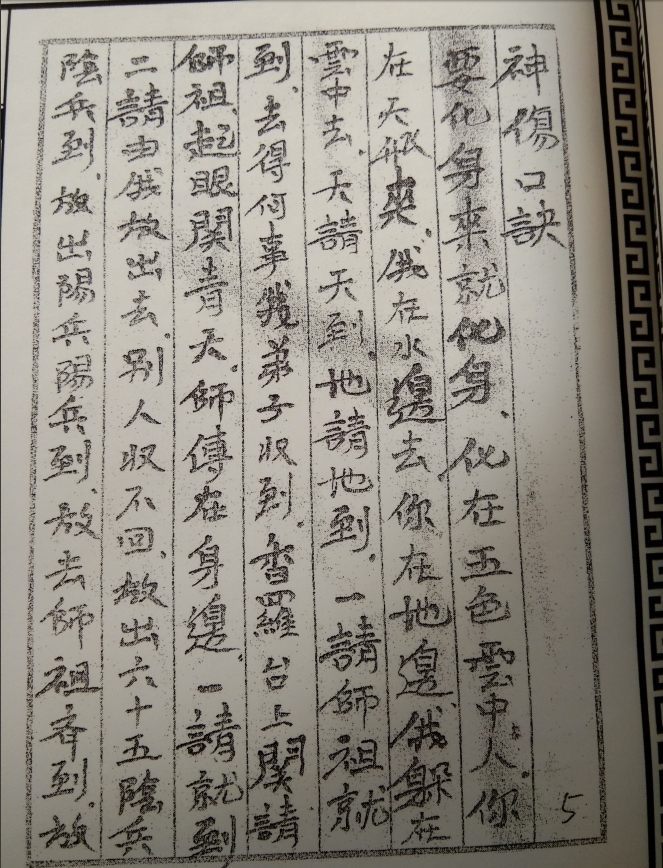 神傷口訣
要化身來就化身、化在五色雲中人、你
在天恨來、俄在水邊去你在地邊俄躲在
雲中去、天請天到、地請地到、一請師祖就
到、去得何事我弟子収到、香羅台上関請
師祖、起眼関青天、師傅在身邊、一請就到
二請由俄放出去、別人収不回、放出六十五陰兵
陰兵到、放出陽兵陽兵到、放去師祖齐到、放
5